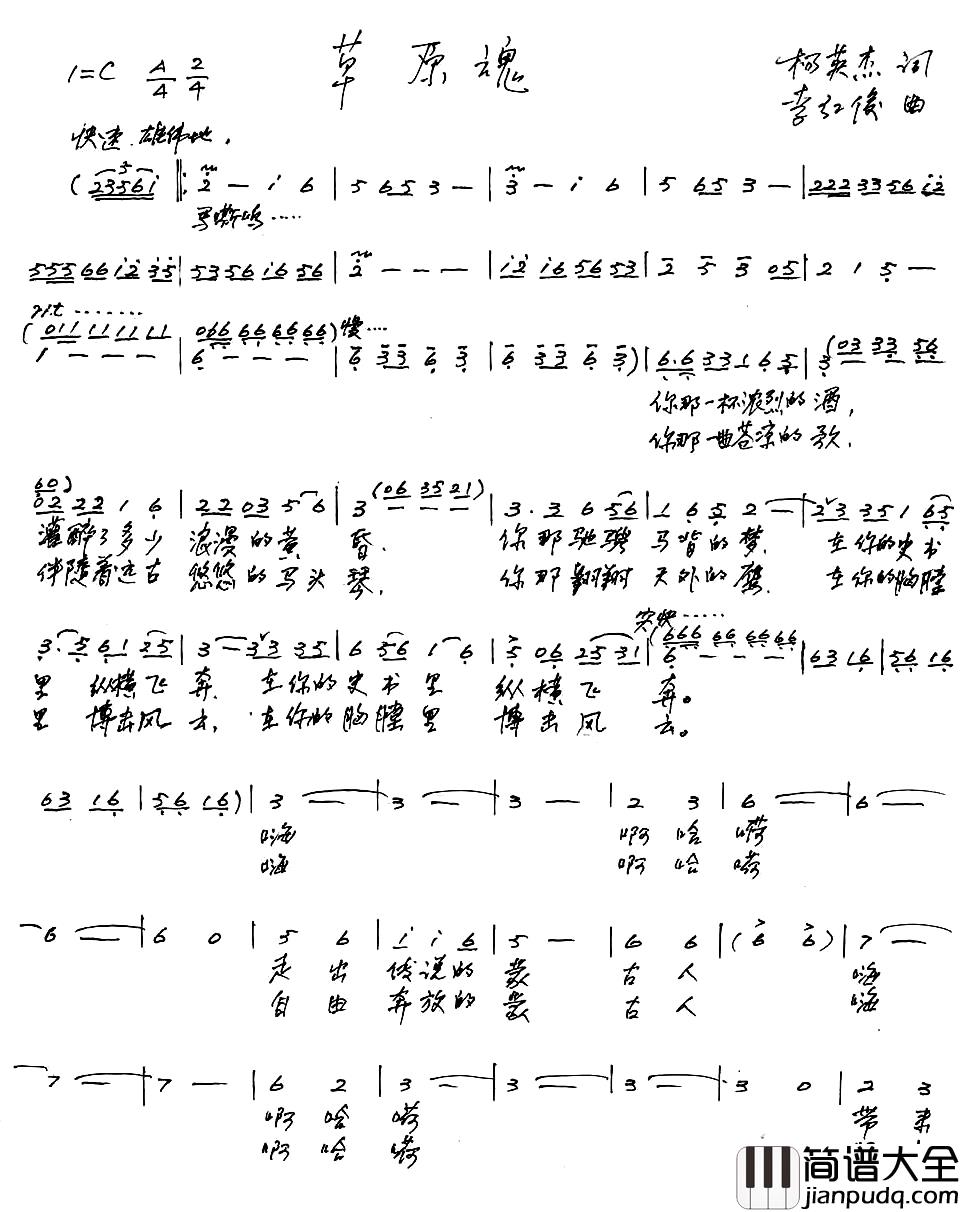 草原魂
1=C 4/4 2/4
杨英杰 词
李红俊 曲
快速 雄伟地.
(23561 ‖: 2 — i 6 | 5 65 3 — | 3 — i 6 | 5 65 3 — | 222 33 56 i2
马嘶鸣……
555 66 i2 35 | 53 56 i6 56 | 2 — — — | i2 i6 56 53 | 2 5 3 05 | 2 1 5 —
rit ……
(011 11 11 11 | 066 66 66 66) 慢……
1 — — — | 6 — — — | 6 33 6 3 | 6 33 6 3) | 6.6 33 1 6 5 | 3 (03 33 56
你那一杯浓烈的酒,
你那一曲苍凉的歌.
60)
02 22 1 6 | 22 03 5 6 | 3 (06 35 21) | 3.3 6 56 | 1 6 5 2 — | 2 3 35 1 65
灌醉了多少 浪漫的黄 昏. 你那驰骋 马背的梦. 在你的史书
伴随着远古 悠悠的马头 琴. 你那翱翔 天外的鹰. 在你的胸膛
突快……
(666 66 66 66
3. 5 61 25 | 3 — 33 35 | 6 56 1 6 | 5 06 25 31 | 6 — — — | 63 16 | 56 16
里 纵横飞 奔. 在你的史书里 纵横飞 奔。
里 搏击风 云, 在你的胸膛里 搏击风 云。
63 16 | 56 16) | 3 — | 3 — | 3 — | 2 3 | 6 — | 6 —
嗨 啊哈嗬
嗨 啊哈嗬
6 — | 6 0 | 5 6 | i i 6 | 5 — | 6 6 | (6 6) | 7 —
走出传说的蒙古人 嗨
自由奔放的蒙古人 嗨
7 — | 7 — | 6 2 | 3 — | 3 — | 3 — | 3 0 | 2 3
啊哈嗬 带来
啊哈嗬
简谱大全
jianpudq.com